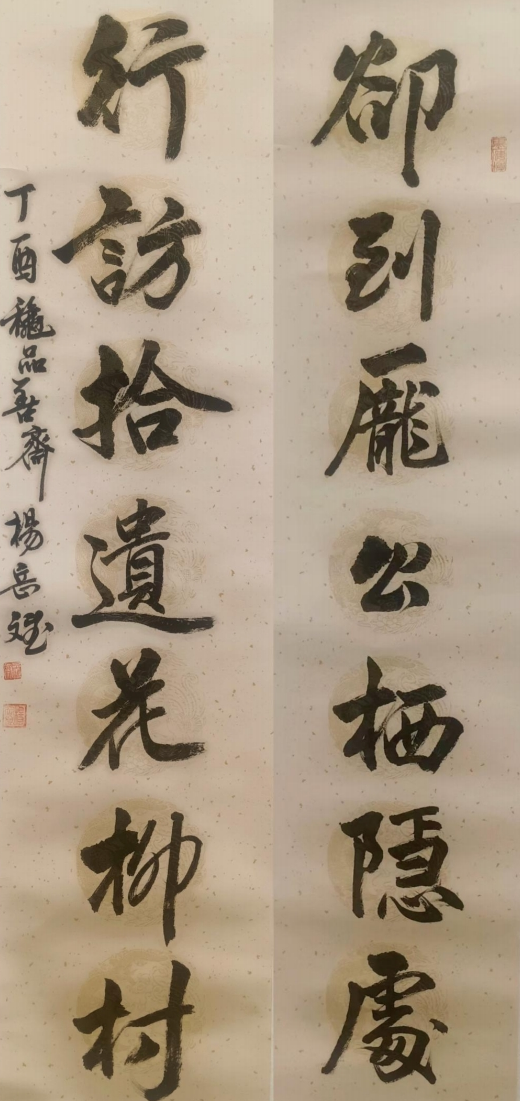 卻到龐公栖隱處
行訪拾遺花柳村
丁酉龝品善齋楊岳斌